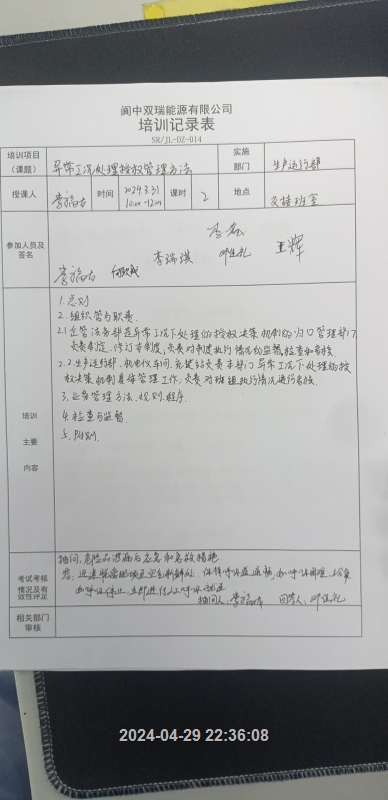 阆中双瑞能源有限公司
培训记录表
SR/JL-DZ-014
培训项目（课题） 异常工况处理授权管理办法 实施部门 生产运行部
授课人 时间 2024.3.31 10:00-12:00 课时 2 地点 交接班室
参加人员及签名
李瑞淇 王辉
培训主要内容
1.总则
2.组织管与职责
2.1 企管法务部是异常工况下处理的授权决策机制的归口管理部门,
负责制定、修订本制度,负责对制度执行情况的监督,检查和考核
2.2.生产运行部、机电仪车间、充装站负责本部门异常工况下处理的授
权决策机制具体管理工作,负责对班组执行情况进行考核.
3.业务管理方法、规则、程序.
4.检查与监督.
5.附则.
考试考核情况及有效性评定
抽问,危险品泄漏后应急和急救措施.
答:迅速脱离现场至空气新鲜处.保持呼吸道通畅,如呼吸困难,给氧
如呼吸停止,立即进行人工呼吸就医
抽问人: 回答人:
相关部门审核
2024-04-29 22:36:08